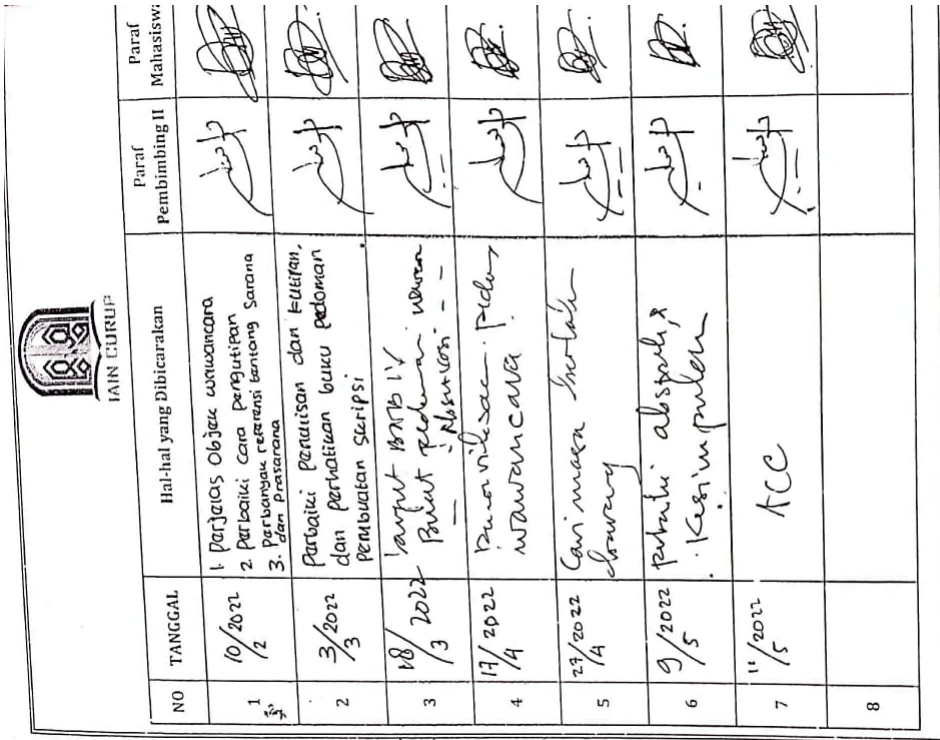 IAIN CURUP
NO
TANGGAL
Hal-hal yang Dibicarakan
Paraf
Pembimbing II
Paraf
Mahasisw
1
10/2022
/2
1. Perjelas Objek wawancara
2 Perbaiki Cara Pengutipan
3. Perbanyak referensi tentang Sarana
dan Prasarana
2
3/2022
/3
Perbaiki Penulisan dan kutipan,
dan perhatikan buku pedoman
Pembuatan Skripsi
3
18/2022
/3
lanjut BAB IV
Buat pedoman
4
17/2022
/4
wawancara
5
27/2022
/4
6
9/5 2022
abstrak,
Kesimpulan
7
11/2022
/5
ACC
8